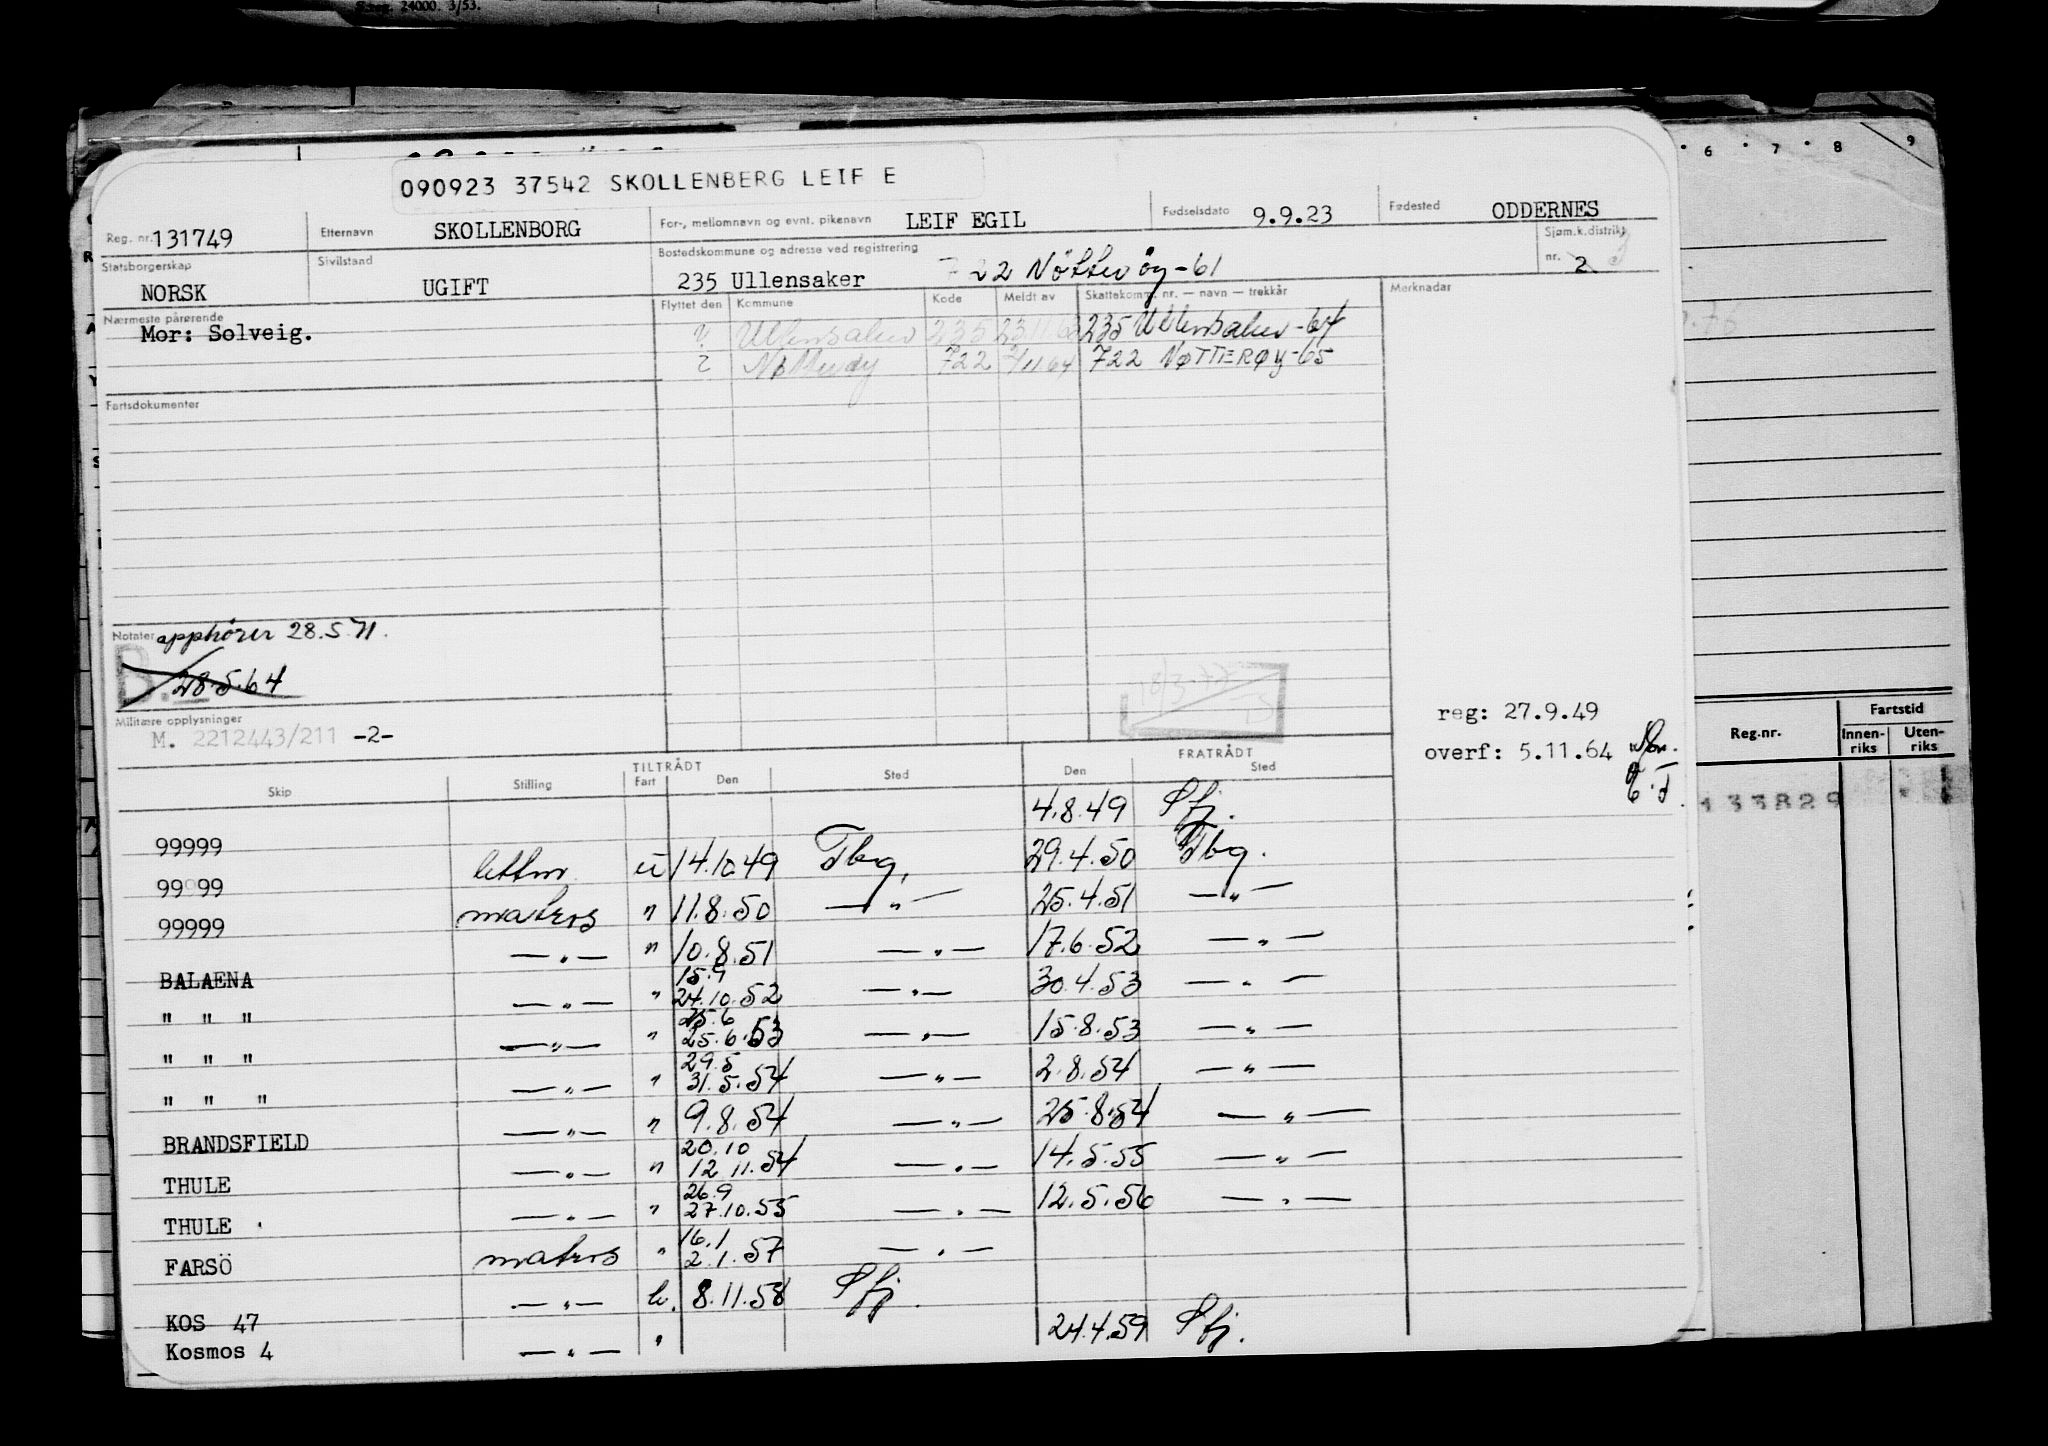 24000. 3/53.
6 · 7 · 8 9
090923 37542 SKOLLENBERG LEIF E
Reg. nr. 131749 Etternavn SKOLLENBORG For-, mellomnavn og evnt. pikenavn LEIF EGIL Fødselsdato 9.9.23 Fødested ODDERNES
Statsborgerskap NORSK Sivilstand UGIFT Bostedskommune og adresse ved registrering 235 Ullensaker 722 Nötteröy-61 Sjøm.k.distrikt nr. 2
Nærmeste pårørende Flyttet den Kommune Kode Meldt av Skattekomm. nr. — navn — trekkår Merknader
Mor: Solveig. ? Ullensaker 235 235 Ullensaker-64
? Nøtterøy 722 2/11 64 722 NØTTERØY-65
Fartsdokumenter
Notater opphører 28.5.71.
B. 28.5.64
Militære opplysninger
M. 2212443/211 -2-
18/3-77
reg: 27.9.49
overf: 5.11.64
Reg.nr. Fartstid
Innen-riks Uten-riks
133829
TILTRÅDT FRATRÅDT
Skip Stilling Fart Den Sted Den Sted
99999 4.8.49 Sfj.
99 99 lettm. u 14.10.49 Tbg. 29.4.50 Tbg.
99999 matros " 11.8.50 —"— 25.4.51 —"—
BALAENA —"— " 10.8.51 —"— 17.6.52 —"—
" " " —"— " 15.9 24.10.52 —"— 30.4.53 —"—
" " " —"— " 25.6 25.6.53 —"— 15.8.53 —"—
" " " —"— " 29.5 31.5.54 —"— 2.8.54 —"—
BRANDSFIELD —"— " 9.8.54 —"— 25.8.54 —"—
THULE —"— " 20.10 12.11.54 —"— 14.5.55 —"—
THULE —"— " 26.9 27.10.55 —"— 12.5.56 —"—
FARSÖ matros " 16.1 2.1.57 —"—
KOS 47 —"— h. 8.11.58 Sfj.
Kosmos 4 —"— " 24.4.59 Sfj.